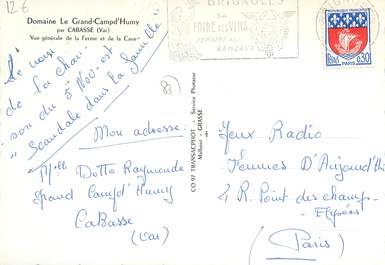 12 €
Domaine Le Grand-Campd'Humy
par CABASSE (Var)
Vue générale de la Ferme et de la Cave
BRIGNOLES
SA
FOIRE DES VINS
SEMAINE DES
RAMEAUX
0,30
PARIS
Le
de la chan-
son du 5 Nov. est
" Scandale dans la famille "
83
Mon adresse
Mlle Dotto Raymonde
grand Campd'Humy
CaBasse
(Var)
CO 97 TRANSACPHOT - Service Photacar
Malbosc - GRASSE
Jeux Radio
Femmes D'Aujourd'hui
4 R. Point des champs-
Elysées
(Paris)